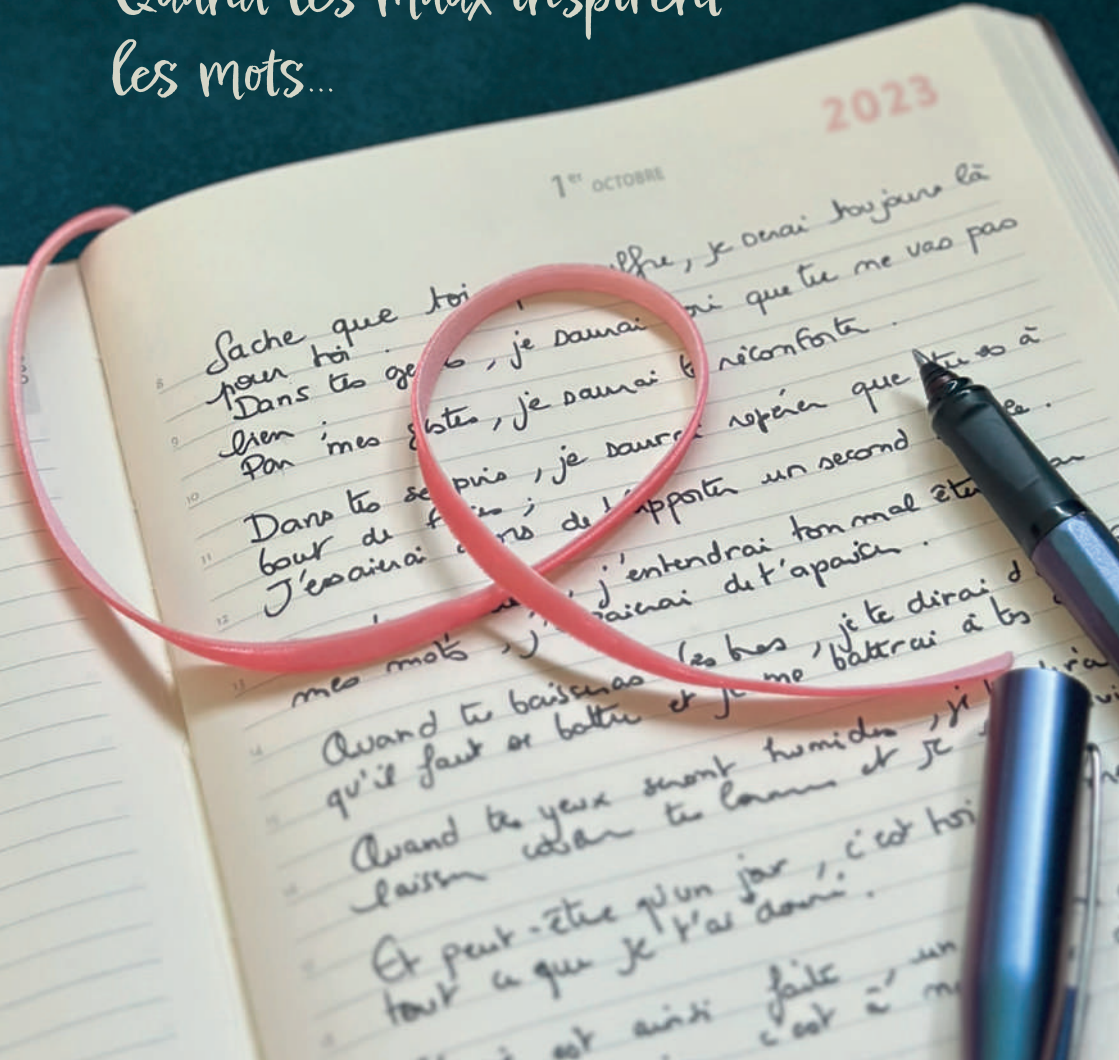 Quand les maux inspirent
les mots...
2023
1er OCTOBRE
Sache que toi ffre, je serai toujours là
pour toi
Dans tes ge s, je saurai oir que tu me vas pas
bien
Par mes gestes, je saurai t réconforter.
Dans tes s puis, je saurai repérer que tu es à
bout de f ;
J'essaierai ors de t'apporter un second le.
j'entendrai ton mal être
mes mots, j' aierai de t'apaiser.
Quand tu baisseras les bras, je te dirai
qu'il faut se battre et je me battrai à tes
Quand tes yeux seront humides, je
laisser couler tes larmes et je
Et peut-être qu'un jour, c'est toi
tout ce que je t'ai donné.
est ainsi faite, un
c'est à
8
9
10
11
12
13